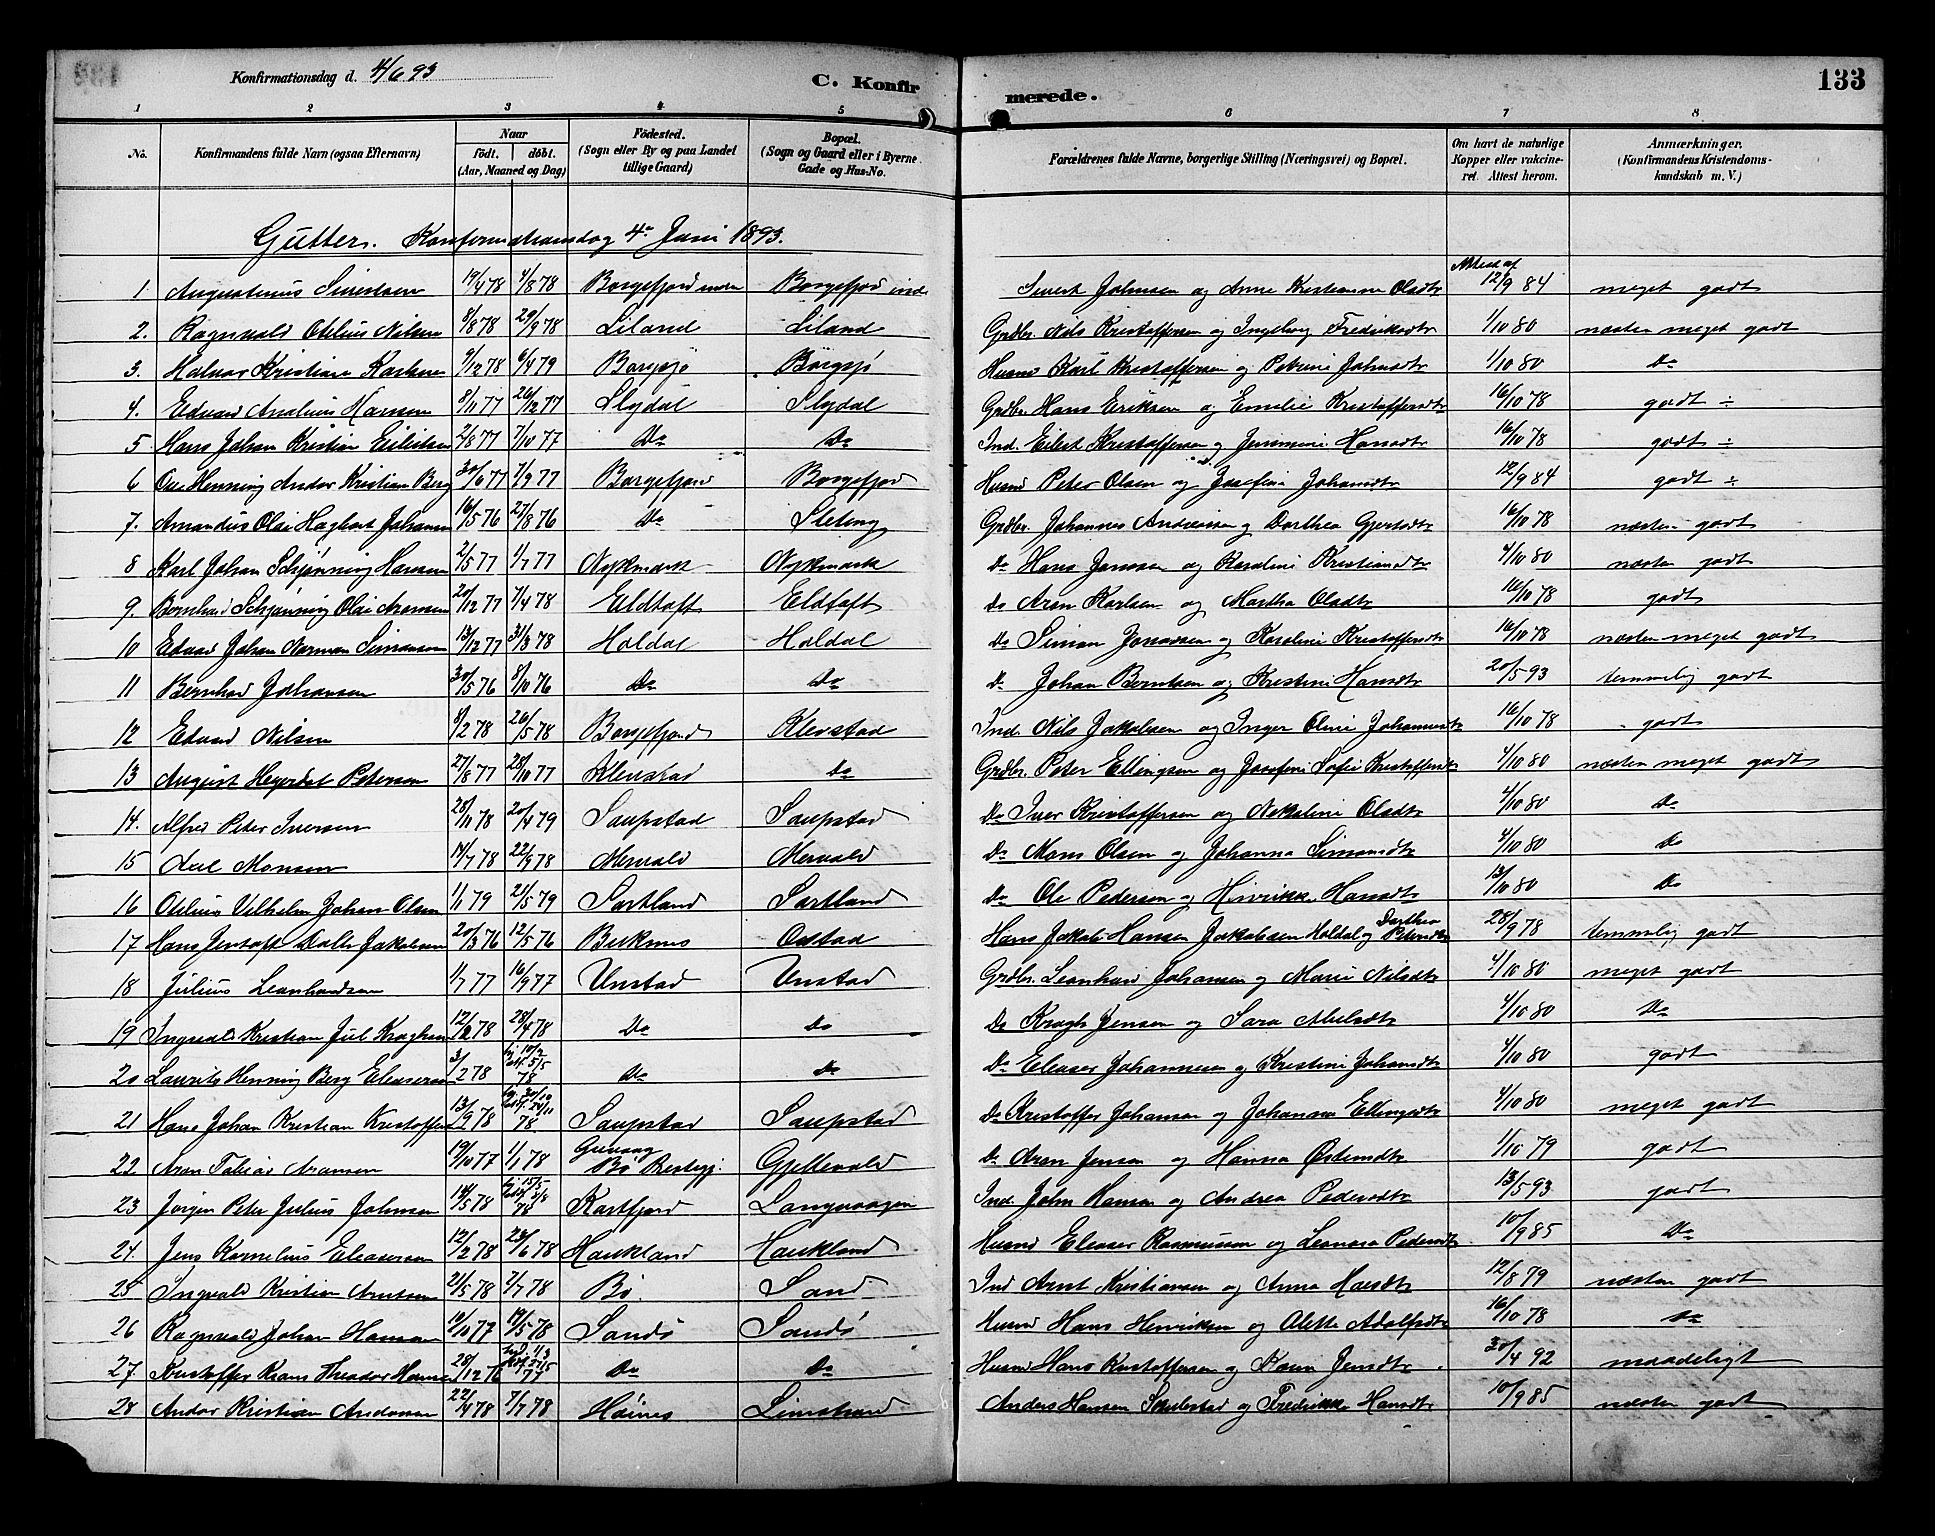 Konfirmationsdag d. 4/6 93
C. Konfirmerede.
133
1 2 3 4 5 6 7 8
No. Konfirmandens fulde Navn (ogsaa Efternavn) Naar födt. döbt. (Aar, Maaned og Dag) Födested. (Sogn eller By og paa Landet tillige Gaard) Bopæl. (Sogn og Gaard eller i Byerne Gade og Hus-No. Forældrenes fulde Navne, borgerlige Stilling (Næringsvei) og Bopæl. Om havt de naturlige Kopper eller vakcineret. Attest herom. Anmærkninger. (Konfirmandens Kristendomskundskab m. V.)
Gutter. Konfirmationsdag 4de Juni 1893.
1 Augustinus Sivertsen 19/4 78 4/8 78 Borgefjord indre Borgefjord ind. Sivert Johnsen og Anne Kristianna Olsdtr Attest af 12/9 84 meget godt
2. Ragnvald Otelius Nilsen 8/8 78 29/9 78 Liland Liland Grdbr. Nils Kristoffersen og Ingeborg Fredriksdtr 1/10 80 næsten meget godt
3. Halvar Kristian Karlsen 9/12 78 6/4 79 Borgsjø Börgsjö Husmd Karl Kristoffersen og Petrine Johnsdtr 1/10 80 Do
4. Edvard Analius Hansen 8/11 77 26/12 77 Slydal Slydal Grdbr. Hans Eriksen og Emelie Kristoffersdtr 16/10 78 godt ÷
5 Hans Johan Kristian Eilertsen 2/8 77 7/10 77 Do Do Ind. Eilert Kristoffersen og Jensine Hansdtr 16/10 78 godt ÷
6 Ove Henning Andor Kristian Berg 30/6 77 7/9 77 Borgefjord Borgefjord Husmd Peter Olsen og Josefine Johansdtr 12/9 84 godt ÷
7. Amandus Olai Hagbart Johansen 16/5 76 27/8 76 Do Sleting Grdbr. Johannes Andreassen og Dorthea Gjertsdtr 16/10 78 næsten godt
8 Karl Johan Schjønning Hansen 2/5 77 1/7 77 Nykmark Nykmark Do Hans Jensen og Karoline Kristiansdtr 4/10 80 næsten godt
9. Bernhard Schjønning Olai Aronsen 20/12 77 7/4 78 Eldtoft Eldtoft Do Aron Karlsen og Martha Olsdtr 16/10 78 godt
10 Edvard Johan Norman Simonsen 13/12 77 31/3 78 Holdal Holdal Do Simon Jonassen og Karoline Kristoffersdtr 16/10 78 næsten meget godt
11 Bernhard Johansen 30/5 76 8/10 76 Do Do Do Johan Berntsen og Kristine Hansdtr 20/5 93 temmelig godt
12 Edvard Nilsen 8/2 78 26/5 78 Borgefjord Klevstad Ind. Nils Jakobsen og Inger Oline Johannesdtr 16/10 78 godt
13 August Heyerdal Petersen 27/8 77 28/10 77 Klevstad Do Grdbr. Peter Ellingsen og Josefine Sofie Kristoffersdtr 4/10 80 næsten meget godt
14. Alfred Peter Iversen 28/11 78 20/4 79 Saupstad Saupstad Do Iver Kristoffersen og Nikoline Olsdtr 4/10 80 Do
15 Axel Monsen 14/7 78 22/9 78 Mervold Mervold Do Mons Olsen og Johanna Simonsdtr 4/10 80 Do
16 Otelius Vilhelm Johan Olsen 1/1 79 21/5 79 Sortland Sortland Do Ole Pedersen og Hinrikke Hansdtr 13/10 80 Do
17 Hans Jentoft Dalir Jakobsen 20/3 76 12/5 76 Buksnes Odstad Hans Jakob Hansen Jakobsen Holdal og Dorthea Petersdtr 28/9 78 temmelig godt
18 Julius Leonhardsen 1/7 77 16/9 77 Unstad Unstad Grdbr. Leonhard Johansen og Marie Nilsdtr 4/10 80 meget godt
19 Ingvald Kristian Jul Kroghsen 12/2 78 28/4 78 Do Do Do Krogh Jensen og Sara Abelsdtr 4/10 80 Do
20 Laurits Henning Berg Eleasersen 3/2 78 hj. 10/2 stadf. 5/5 78 Do Do Do Eleaser Johannesen og Kristine Johansdtr 4/10 80 godt
21 Hans Johan Kristian Kristoffersen 13/9 78 hj. 20/10 stadf. 24/11 78 Saupstad Saupstad Do Kristoffer Johansen og Johanna Ellingsdtr 4/10 80 meget godt
22 Aron Tobias Aronsen 19/10 77 1/1 78 Bø Gjellevold Do Aron Jensen og Hanna Østensdtr 1/10 79 godt
23 Jørgen Peter Julius Johnsen 14/5 78 hj. 15/5 78 Kartfjord Langvaagen Ind. John Hansen og Andrea Pedersdtr 13/5 93 godt
24. Jens Kornelius Eleasersen 12/2 78 23/6 78 Haukland Haukland Husmd Eleaser Rasmussen og Leonara Pedersdtr 10/9 85 Do
25 Ingvald Kristian Arntsen 21/5 78 7/7 78 Bø. Sand. Ind Arnt Kristiansen og Anna Hansdtr 12/8 79 næsten godt
26 Ragnvald Johan Hansen 10/10 77 19/5 78 Sandö Sandö Husmd Hans Henriksen og Alette Adolfsdtr 16/10 78 Do
27. Kristoffer Krans Theodor Hansen 28/12 76 77 Do Do Husmd Hans Kristoffersen og Karen Jensdtr 30/4 92 maadeligt
28 Andor Kristian Andersen 22/4 78 7/7 78 Höines Limstrand Anders Hansen Skulestad og Fredrikke Hansdtr 10/9 85 næsten godt